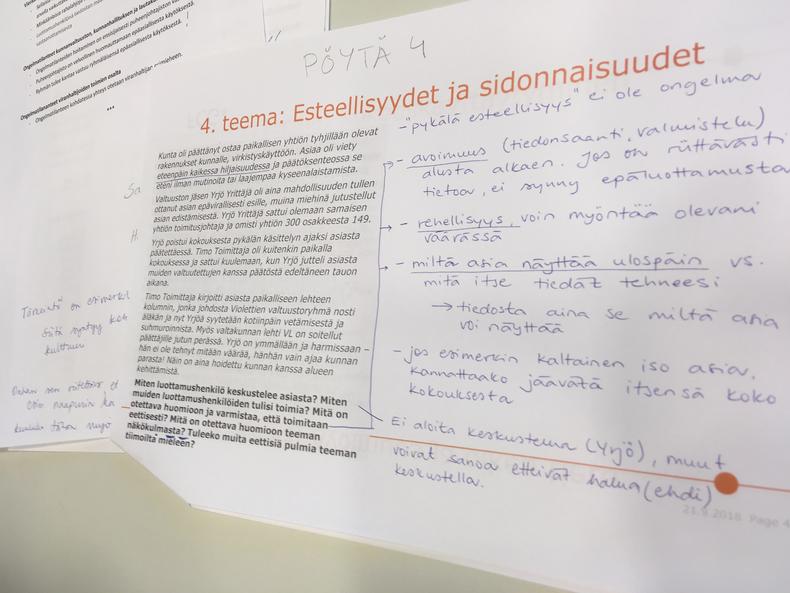 Ongelmatilanteet kunnanvaltuuston, kunnanhallituksen ja
Ongelmatilanteiden hoitaminen on ensisijaisesti puheenjohtajiston
Puheenjohtajisto on velvollinen huomauttamaan epäasiallisesta käytöksestä.
Ryhmän tulee kantaa vastuu ryhmäläisensä epäasiallisesta käytöksestä.
Ongelmatilanteet viranhaltijoiden toimien osalta
Ongelmatilanteen kohdatessa yhteys otetaan viranhaltijan esimieheen.
PÖYTÄ 4
4. teema: Esteellisyydet ja sidonnaisuudet
Kunta oli päättänyt ostaa paikallisen yhtiön tyhjillään olevat
rakennukset kunnalle, virkistyskäyttöön. Asiaa oli viety
eteenpäin kaikessa hiljaisuudessa ja päätöksenteossa se
eteni ilman mutinoita tai laajempaa kyseenalaistamista.
Valtuuston jäsen Yrjö Yrittäjä oli aina mahdollisuuden tullen
ottanut asian epävirallisesti esille, muina miehinä jutustellut
asian edistämisestä. Yrjö Yrittäjä sattui olemaan samaisen
yhtiön toimitusjohtaja ja omisti yhtiön 300 osakkeesta 149.
Yrjö poistui kokouksesta pykälän käsittelyn ajaksi asiasta
päätettäessä. Timo Toimittaja oli kuitenkin paikalla
kokouksessa ja sattui kuulemaan, kun Yrjö jutteli asiasta
muiden valtuutettujen kanssa päätöstä edeltäneen tauon
aikana.
Timo Toimittaja kirjoitti asiasta paikalliseen lehteen
kolumnin, jonka johdosta Violettien valtuustoryhmä nosti
äläkän ja nyt Yrjöä syytetään kotiinpäin vetämisestä ja
suhmuroinnista. Myös valtakunnan lehti VL on soitellut
päättäjille jutun perässä. Yrjö on ymmällään ja harmissaan –
hän ei ole tehnyt mitään väärää, hänhän vain ajaa kunnan
parasta! Näin on aina hoidettu kunnan kanssa alueen
kehittämistä.
Miten luottamushenkilö keskustelee asiasta? Miten
muiden luottamushenkilöiden tulisi toimia? Mitä on
otettava huomioon ja varmistaa, että toimitaan
eettisesti? Mitä on otettava huomioon teeman
näkökulmasta? Tuleeko muita eettisiä pulmia teeman
tiimoilta mieleen?
- "pykälä esteellisyys" ei ole ongelma
- avoimuus (tiedonsaanti, valmistelu)
alusta alkaen. Jos on riittävästi
tietoa, ei synny epäluottamusta
- rehellisyys, voin myöntää olevani
väärässä
- miltä asia näyttää ulospäin vs.
mitä itse tiedät tehneesi
→ tiedosta aina se miltä asia
voi näyttää
- jos esimerkin kaltainen iso asia,
kannattaako jäävätä itsensä koko
kokouksesta
Ei aloita keskustelua (Yrjö), muut
voivat sanoa etteivät halua (ehdi)
keskustella.
21.9.2018 Page 4